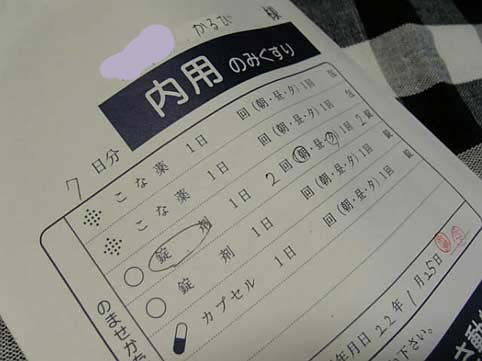 かるび 様
内用 のみくすり
7 日分
こな薬 1日 回(朝・昼・夕)1回 包
こな薬 1日 回(朝・昼・夕)1回 包
錠剤 1日 2回(朝・昼・夕)1回 2錠
錠剤 1日 回(朝・昼・夕)1回 錠
カプセル 1日 回(朝・昼・夕)1回 錠
のませかた
年月日 22年1月25日
下さい。
動